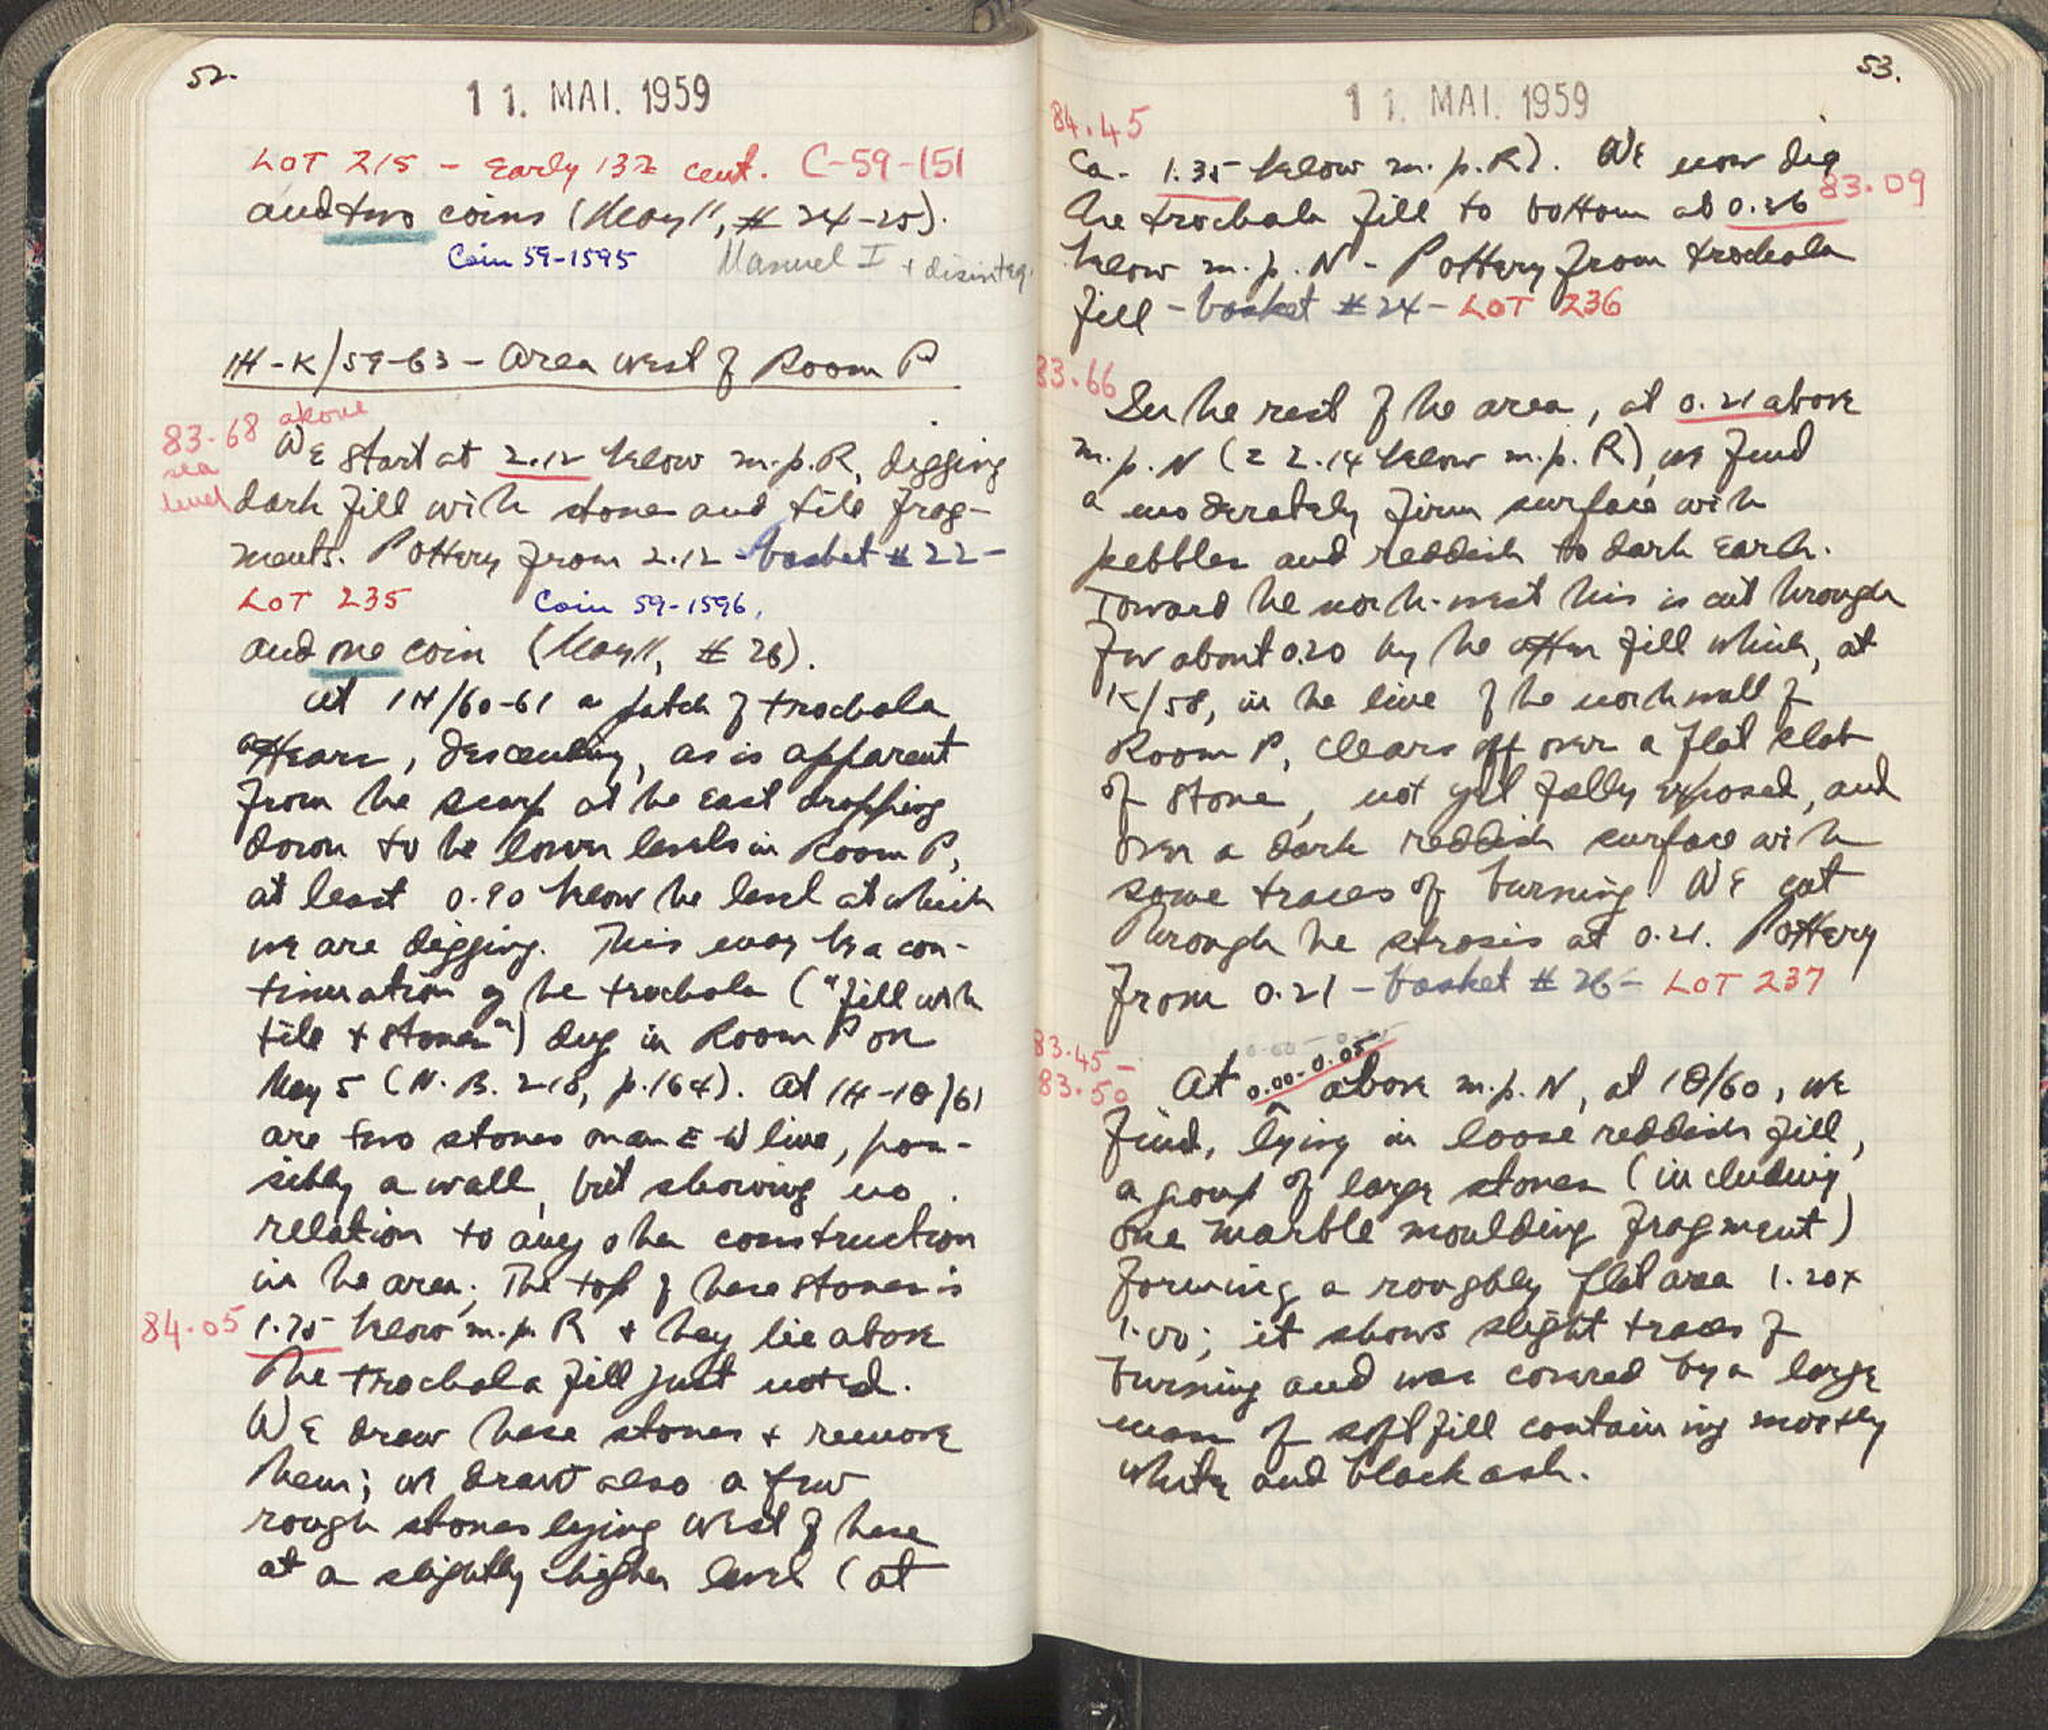 52.
11. MAI. 1959
LOT 215 - Early 13th cent. C-59-151
and two coins (May 11, # 24-25).
Coin 59-1595 Manuel I + disinteg.
1H-K/59-63 - Area West of Room P
83.68 above sea level
We start at 2.12 below m.p.R, digging
dark fill with stones and tile frag-
ments. Pottery from 2.12 - basket # 22 -
LOT 235 Coin 59-1596,
and one coin (May 11, # 26).
At 1H/60-61 a patch of trochala
appears, descending, as is apparent
from the scarp at the East dropping
down to the lower levels in Room P,
at least 0.90 below the level at which
we are digging. This may be a con-
tinuation of the trochala ("fill with
tile + stones") dug in Room P on
May 5 (N.B. 218, p.164). At 1H-1Θ/61
are two stones on an E-W line, pos-
sibly a wall, but showing no
relation to any other construction
in the area. The top of these stones is
84.05 1.75 below m.p. R + they lie above
the trochala fill just noted.
We draw these stones + remove
them; we draw also a few
rough stones lying West of these
at a slightly higher level (at
53.
11. MAI. 1959
84.45
ca. 1.35 below m.p.R). We now dig
the trochala fill to bottom at 0.36 83.09
below m.p.N - Pottery from trochala
fill - basket # 24 - LOT 236
83.66
In the rest of the area, at 0.21 above
m.p.N (= 2.14 below m.p. R), we find
a moderately firm surface with
pebbles and reddish to dark earth.
Toward the north-west this is cut through
for about 0.20 by the softer fill which, at
K/58, in the line of the north wall of
Room P, clears off over a flat slab
of stone, not yet fully exposed, and
over a dark reddish surface with
some traces of burning. We cut
through the strosis at 0.21. Pottery
from 0.21 - basket # 26 - LOT 237
83.45 - 83.50
At 0.00-0.05 above m.p.N, at 1Θ/60, we
find, lying in loose reddish fill,
a group of large stones (including
one marble moulding fragment)
forming a roughly flat area 1.20x
1.00; it shows slight traces of
burning and was covered by a large
mass of soft fill containing mostly
white and black ash.